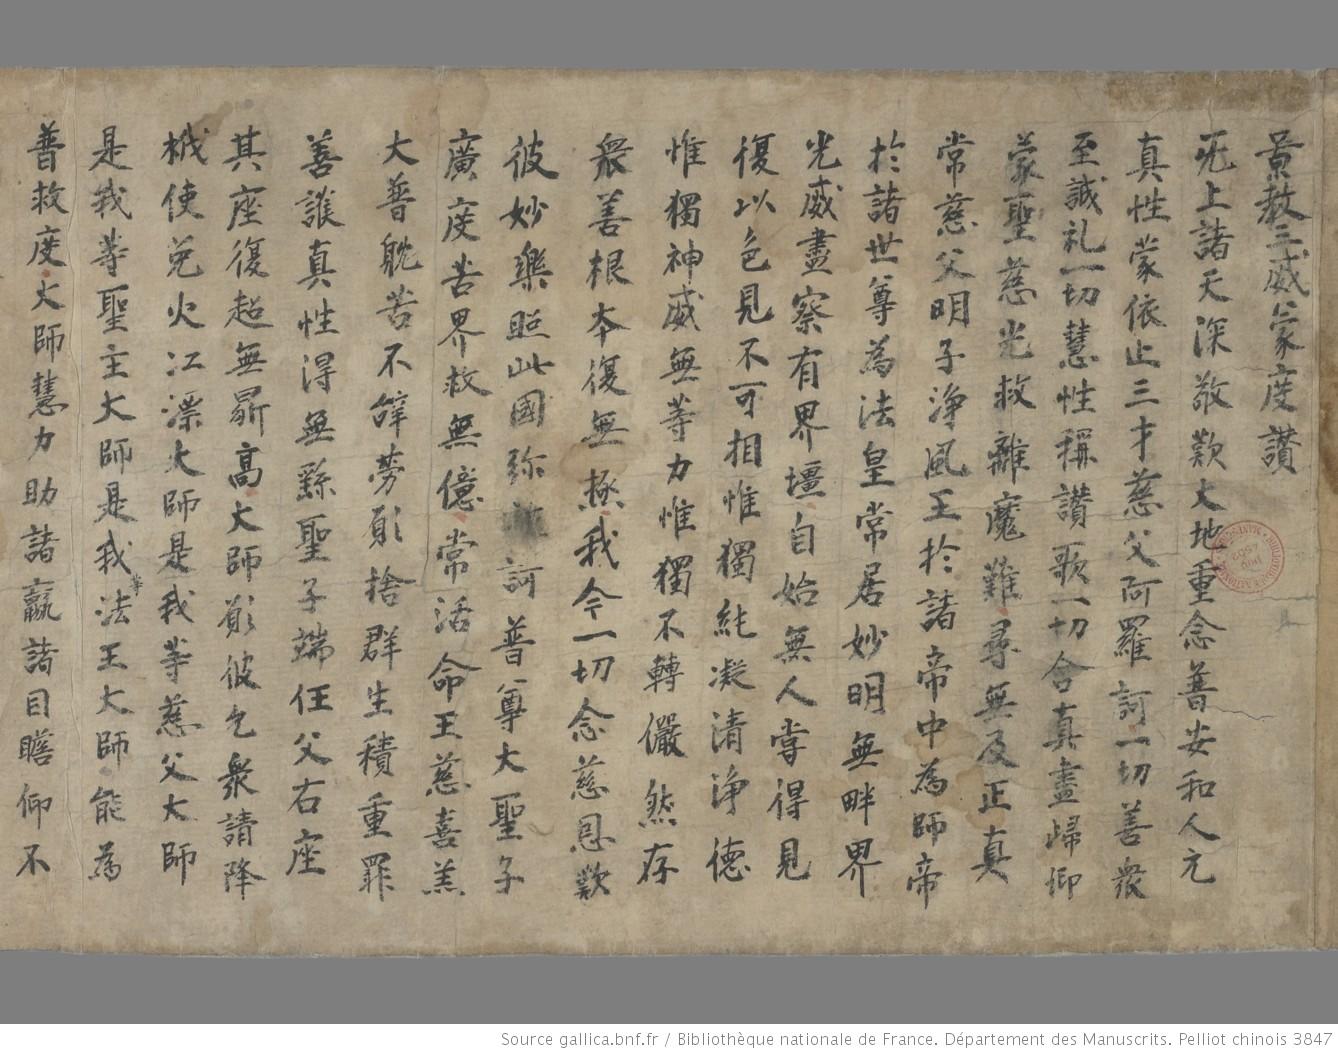 景教三威蒙度讚
无上諸天深敬歎大地重念普安和人元
真性蒙依止三才慈父阿羅訶一切善衆
至誠礼一切慧性稱讚歌一切含真盡歸仰
蒙聖慈光救離魔難尋無及正真
常慈父明子淨風王於諸帝中為師帝
於諸世尊為法皇常居妙明無畔界
光威盡察有界壃自始無人甞得見
復以色見不可相惟獨純凝清淨德
惟獨神威無等力惟獨不轉儼然存
衆善根本復無極我今一切念慈恩歎
彼妙樂照此國弥訶普尊大聖子
廣度苦界救無億常活命王慈喜羔
大普躭苦不辤勞願捨群生積重罪
善護真性得無繇聖子端任父右座
其座復超無鼎高大師願彼乞衆請降
栰使免火江漂大師是我等慈父大師
是我等聖主大師是我法王大師能為
普救度大師慧力助諸羸諸目瞻仰不
Source gallica.bnf.fr / Bibliothèque nationale de France. Département des Manuscrits. Pelliot chinois 3847